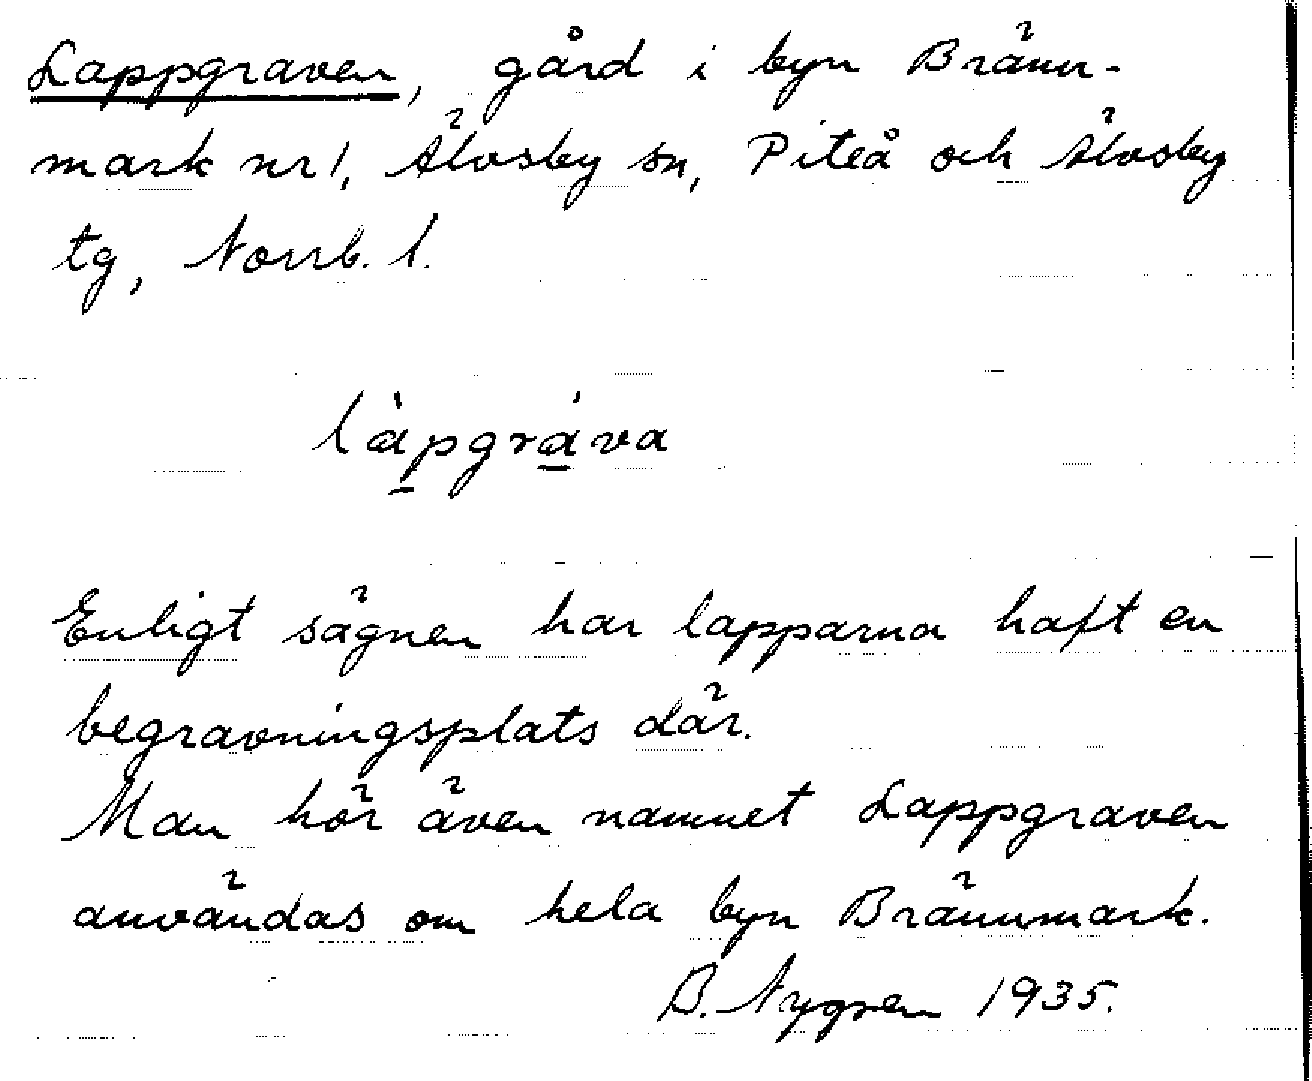 Lappgraven, gård i byn Bränn-
mark nr 1, Älvsby sn, Piteå och Älvsby
tg, Norrb. l.
làpgráva
Enligt sägnen har lapparna haft en
begravningsplats där.
Man hör även namnet Lappgraven
användas om hela byn Brännmark.
B. Nygren 1935.